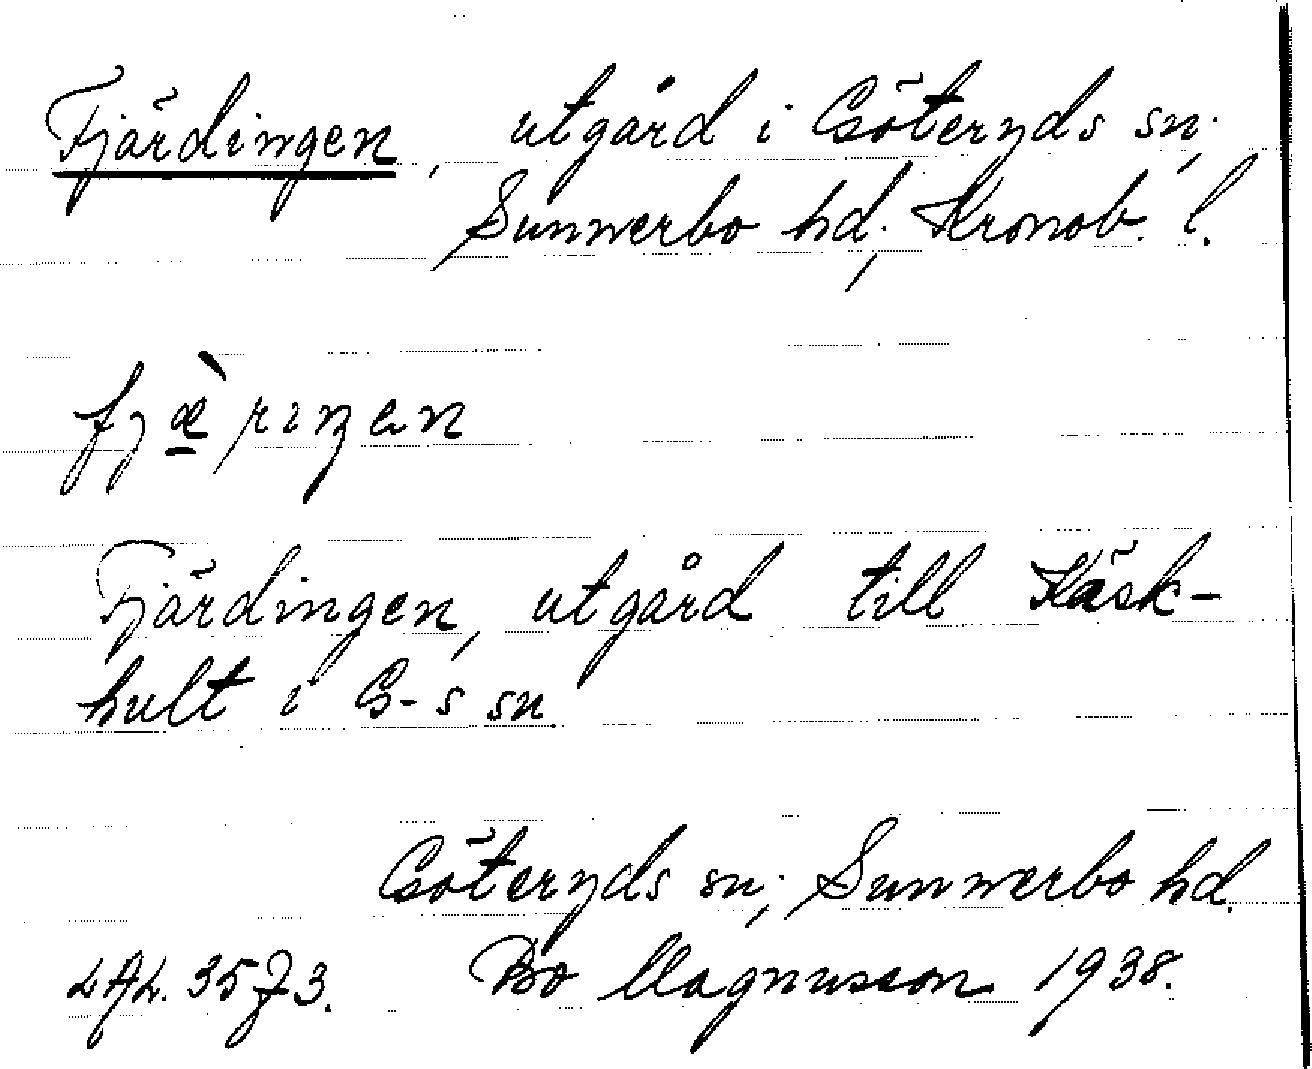 Fjärdingen, utgård i Göteryds sn,
Sunnerbo hd, Kronob. l.
fjæ̀riŋen
Fjärdingen, utgård till Käsk-
hult i G-s sn
Göteryds sn, Sunnerbo hd.
LAL. 3573. Bo Magnusson 1938.